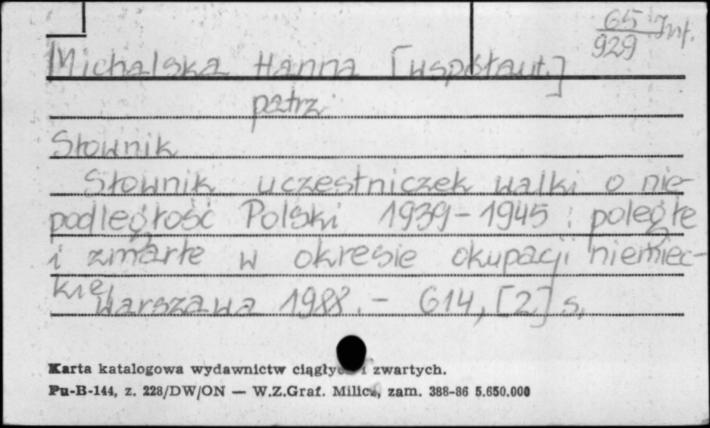 65 Inf.
929
Michalska Hanna [współaut.]
patrz
Słownik
Słownik uczestniczek walki o nie-
podległość Polski 1939-1945 : poległe
i zmarłe w okresie okupacji niemiec-
kiej
Warszawa 1988. - 614, [2] s.
Karta katalogowa wydawnictw ciągłych i zwartych.
Pu-B-144, z. 228/DW/ON — W.Z.Graf. Milicz, zam. 388-86 5.650.000